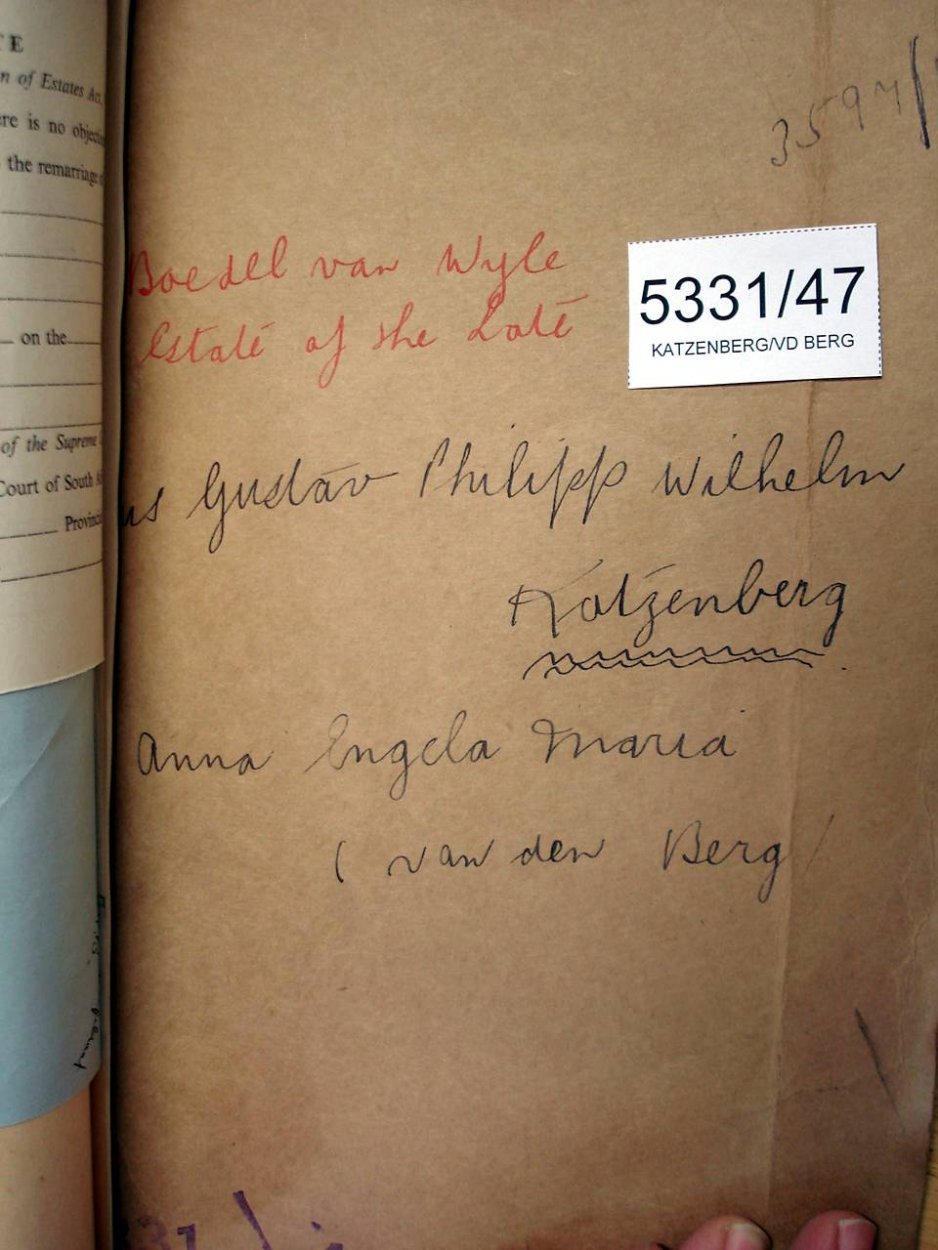 TE
n of Estates Act,
ere is no objection
the remarriage
on the
of the Supreme
Court of South
Provincial
3594/
Boedel van Wyle
Estate of the Late
5331/47
KATZENBERG/VD BERG
us Gustav Philipp Wilhelm
Katzenberg
Anna Engela Maria
( van den Berg )